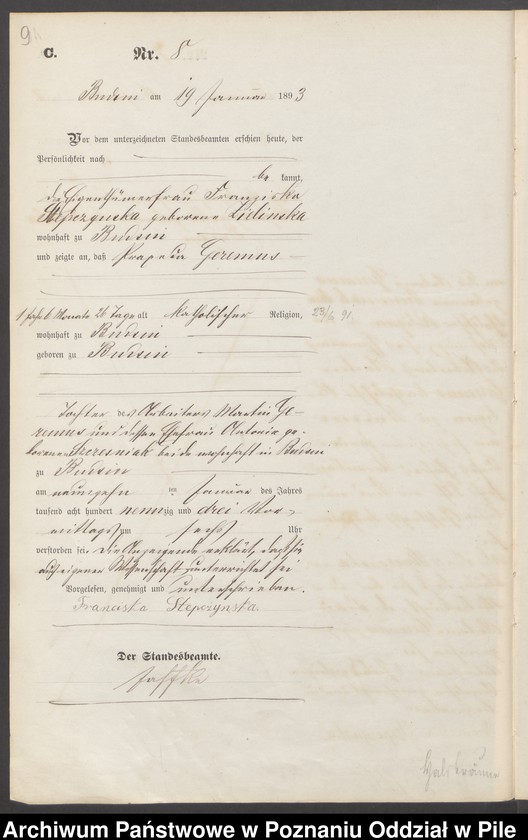 9
C. Nr. 8
Budsin am 19 Januar 1893
Vor dem unterzeichneten Standesbeamten erschien heute, der
Persönlichkeit nach
be kannt,
die Eigenthümerfrau Franziska
Stepczynska geborene Lidinska
wohnhaft zu Budsin
und zeigte an, daß Praxeda Geremus
1 Jahr 6 Monate 26 Tage alt katholischer Religion, 23/6 91.
wohnhaft zu Budsin
geboren zu Budsin
Tochter des Arbeiters Martin Ge-
remus und dessen Ehefrau Antonie ge-
borenen Szczesniak beide wohnhaft in Budsin
zu Budsin
am neunzehn ten Januar des Jahres
tausend acht hundert neunzig und drei Vor-
mittags um sechs Uhr
verstorben sei. Die Anzeigende erklärt, daß sie
aus eigener Wissenschaft unterrichtet sei
Vorgelesen, genehmigt und unterschrieben.
Franciska Stepczynska
Der Standesbeamte.
Jaffke
Halsbräune
Archiwum Państwowe w Poznaniu Oddział w Pile